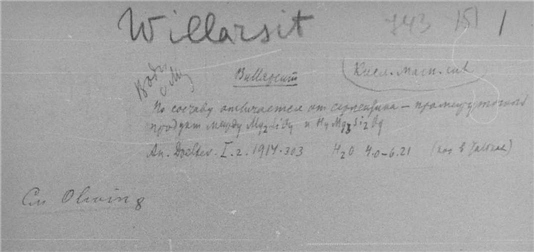 Willarsit 743 151 1
Вилларсит
По составу отличается от серпентина – промежуточный
продукт между Mg2SiO4 и H4Mg3Si2O9
An. Doelter. I.2. 1914. 303 H2O 4.0–6.21
См Olivin 8